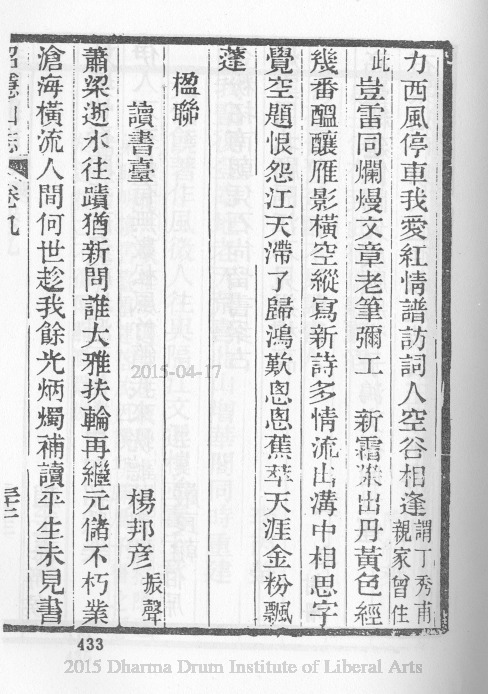 力西風停車我愛紅情譜訪詞人空谷相逢謂丁秀甫親家曾住
此豈雷同爛熳文章老筆彌工　新霜染出丹黃色經
幾番醞釀雁影橫空縱寫新詩多情流出溝中相思字
覺空題恨怨江天滯了歸鴻歎悤悤蕉萃天涯金粉飄
蓬
楹聯
讀書臺　楊邦彥振聲
蕭梁逝水往蹟猶新問誰大雅扶輪再繼元儲不朽業
滄海橫流人間何世趁我餘光炳燭補讀平生未見書
招隱山志　卷九　三十二
2015-04-17
433
2015 Dharma Drum Institute of Liberal Arts